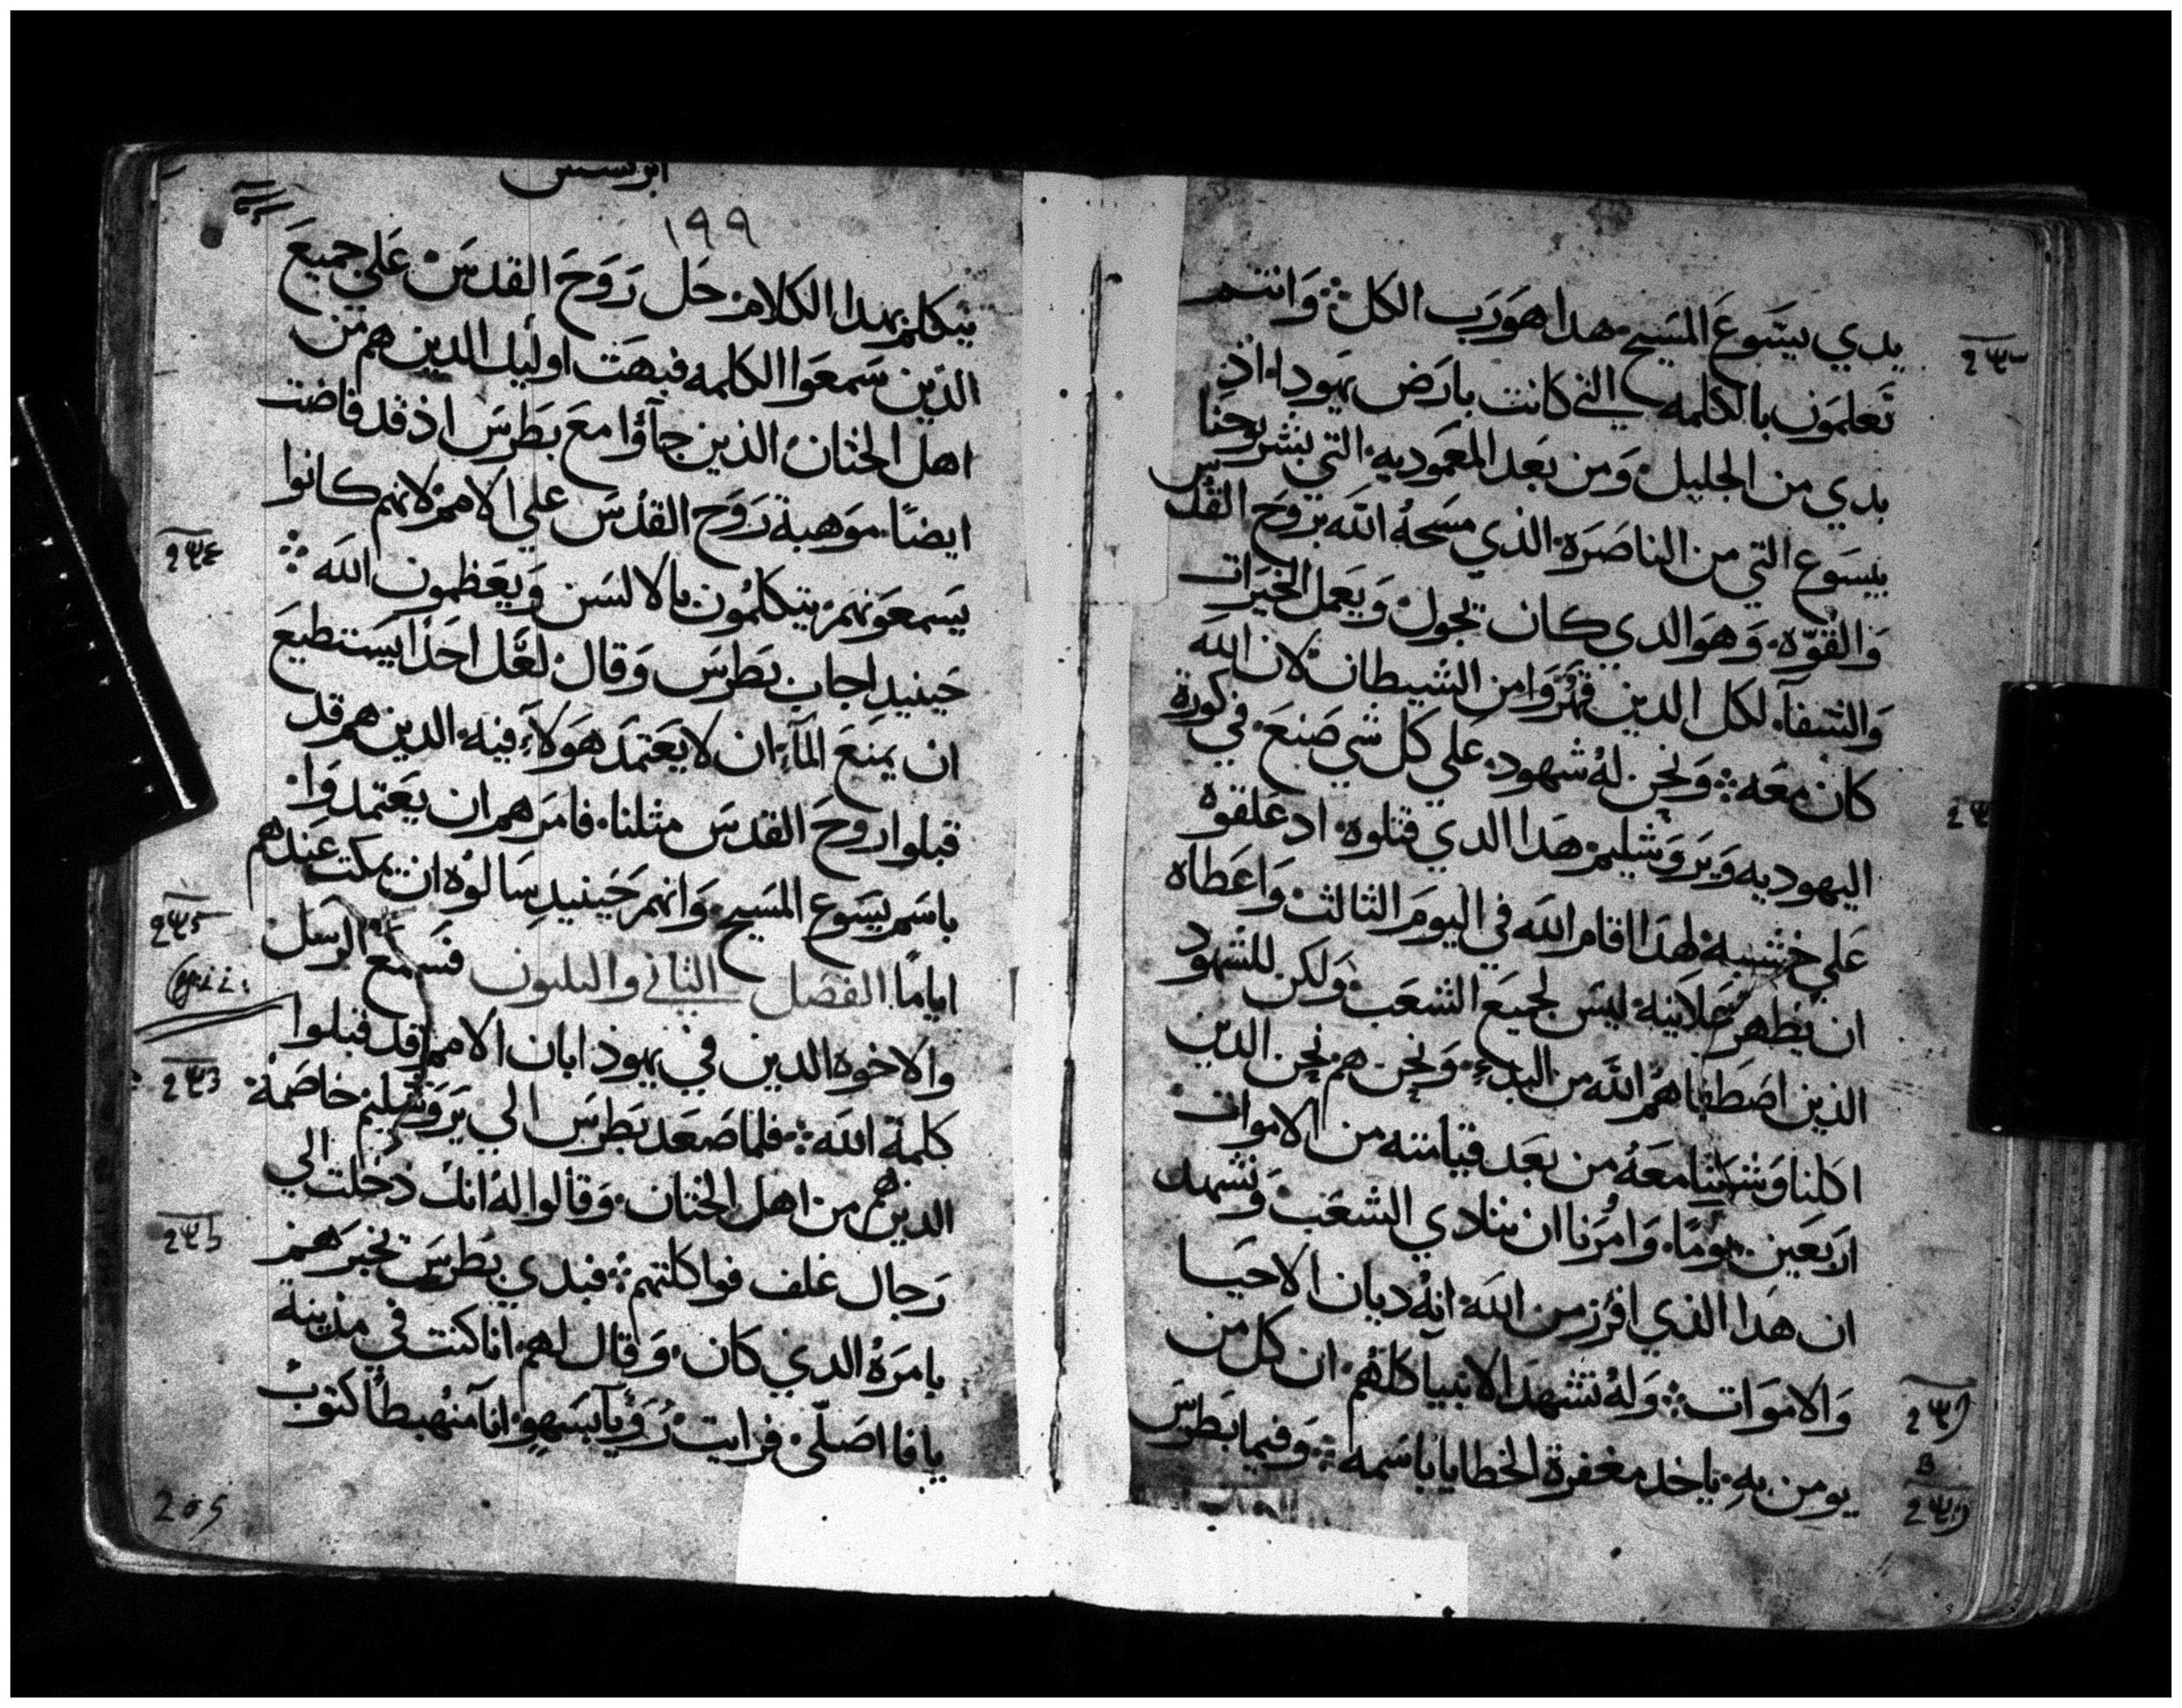 يدي يسوع المسيح هدا هو رب الكل وانتم
تعلمون بالكلمه التي كانت بارض يهودا اذ
بدي من الجليل ومن بعد المعموديه التي بشر يوحنا
بيسوع التي من الناصره الذي مسحه الله بروح القدس
والقوه وهو الدي كان يجول ويعمل الخيرات
والشفا لكل الدين قهروا من الشيطان لان الله
كان معه ونحن له شهود علي كل شي صنع في كورة
اليهوديه ويروشليم هدا الدي قتلوه اد علقوه
علي خشبه لهدا اقام الله في اليوم الثالث واعطاه
ان يظهر علانيه ليس لجميع الشعب ولكن للشهود
الذين اصطفاهم الله من البدء ونحن هم نحن الدين
اكلنا وشربنا معه من بعد قيامته من الاموات
اربعين يوما وامرنا ان ننادي الشعب ونشهد
ان هدا الذي افرز من الله انه ديان الاحيا
والاموات وله تشهد الانبيا كلهم ان كل من
يومن به ياخد مغفرة الخطايا باسمه وفيما بطرس
ابركسيس
١٩٩
يتكلم بهدا الكلام حل روح القدس علي جميع
الذين سمعوا الكلمه فبهت اوليك الدين هم من
اهل الختان الذين جاؤا مع بطرس اذ قد فاضت
ايضا موهبة روح القدس علي الامم لانهم كانوا
يسمعونهم يتكلمون بالالسن ويعظمون الله
حينيد اجاب بطرس وقال لعل احدا يستطيع
ان يمنع الماء ان لا يعتمد هولاء فيه الدين هم قد
قبلوا روح القدس مثلنا فامرهم ان يعتمدوا
باسم يسوع المسيح وانهم حينيد سالوه ان يمكت عندهم
اياما الفصل الثاني والثلثون فسمع الرسل
والاخوه الدين في يهودا بان الامم قد قبلوا
كلمة الله فلما صعد بطرس الي يروشليم خاصمه
الدين هم من اهل الختان وقالوا له انك دخلت الي
رجال غلف فواكلتهم فبدي بطرس يخبرهم
بامره الدي كان وقال لهم انا كنت في مدينة
يافا اصلي فرايت رويا بسهو انا منهبطا كتوب
205